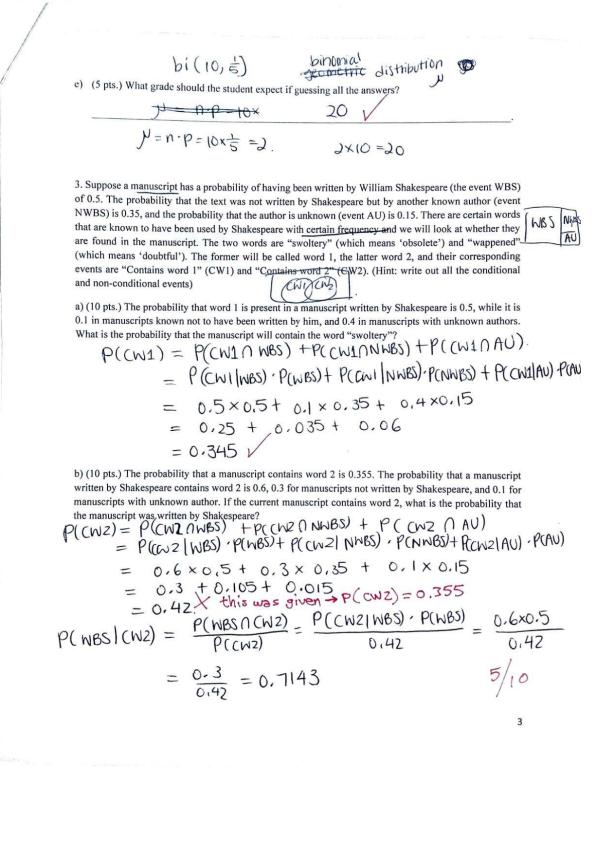 bi(10, 1/5) binomial geometric distribution
μ
c) (5 pts.) What grade should the student expect if guessing all the answers?
μ = n·p = 10× 20 ✓
μ = n·p = 10×1/5 = 2. 2×10 = 20
3. Suppose a manuscript has a probability of having been written by William Shakespeare (the event WBS)
of 0.5. The probability that the text was not written by Shakespeare but by another known author (event
NWBS) is 0.35, and the probability that the author is unknown (event AU) is 0.15. There are certain words
that are known to have been used by Shakespeare with certain frequency and we will look at whether they
are found in the manuscript. The two words are "swoltery" (which means 'obsolete') and "wappened"
(which means 'doubtful'). The former will be called word 1, the latter word 2, and their corresponding
events are "Contains word 1" (CW1) and "Contains word 2" (CW2). (Hint: write out all the conditional
and non-conditional events)
WBS NWBS
AU
CW1 CW2
a) (10 pts.) The probability that word 1 is present in a manuscript written by Shakespeare is 0.5, while it is
0.1 in manuscripts known not to have been written by him, and 0.4 in manuscripts with unknown authors.
What is the probability that the manuscript will contain the word "swoltery"?
P(CW1) = P(CW1∩WBS) + P(CW1∩NWBS) + P(CW1∩AU).
= P(CW1|WBS)·P(WBS) + P(CW1|NWBS)·P(NWBS) + P(CW1|AU)·P(AU
= 0.5×0.5 + 0.1×0.35 + 0.4×0.15
= 0.25 + 0.035 + 0.06
= 0.345 ✓
b) (10 pts.) The probability that a manuscript contains word 2 is 0.355. The probability that a manuscript
written by Shakespeare contains word 2 is 0.6, 0.3 for manuscripts not written by Shakespeare, and 0.1 for
manuscripts with unknown author. If the current manuscript contains word 2, what is the probability that
the manuscript was written by Shakespeare?
P(CW2) = P(CW2∩WBS) + P(CW2∩NWBS) + P(CW2∩AU)
= P(CW2|WBS)·P(WBS) + P(CW2|NWBS)·P(NWBS) + P(CW2|AU)·P(AU)
= 0.6×0.5 + 0.3×0.35 + 0.1×0.15
= 0.3 + 0.105 + 0.015
= 0.42 X this was given → P(CW2) = 0.355
P(WBS|CW2) = P(WBS∩CW2)/P(CW2) = P(CW2|WBS)·P(WBS)/0.42 = 0.6×0.5/0.42
= 0.3/0.42 = 0.7143
5/10
3